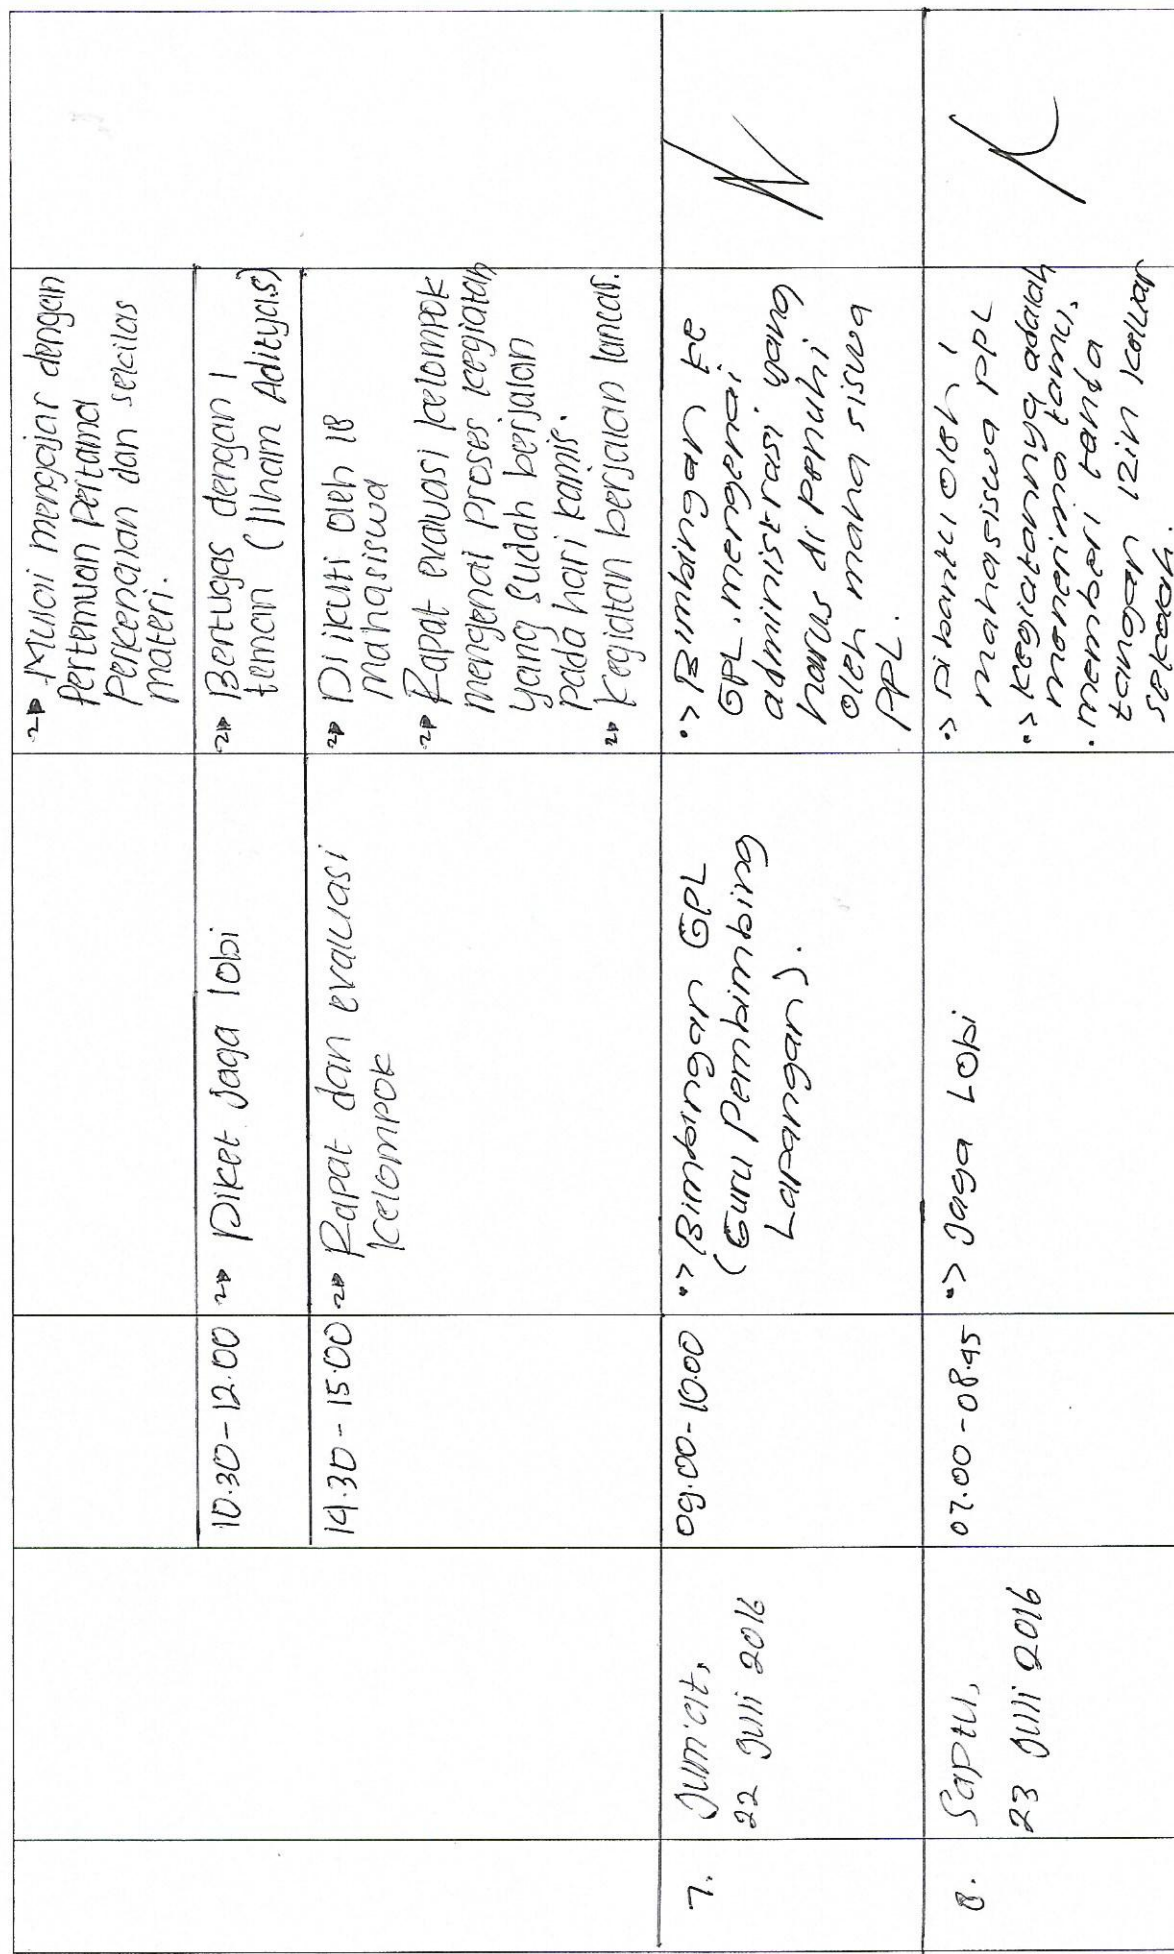 -Mulai mengajar dengan
Pertemuan Pertama
Perkenalan dan sekilas
materi.
10.30-12.00
Piket Jaga lobi
Bertugas dengan 1
teman (Ilham Adityas)
14.30-15.00
Rapat dan evaluasi
kelompok
Di ikuti oleh 18
Mahasiswa
Rapat evaluasi kelompok
mengenai proses kegiatan
yang sudah berjalan
pada hari kamis.
kegiatan berjalan lancar.
7.
Jum'at,
22 Juli 2016
09.00-10.00
Bimbingan GPL
(Guru Pembimbing
Lapangan).
Bimbingan ke
GPL. mengenai
administrasi yang
harus di penuhi
oleh maha siswa
PPL.
8.
Saptu,
23 Juli 2016
07.00-08.45
Jaga Lobi
Dibantu oleh 1
mahasiswa PPL
kegiatannya adalah
menerima tamu,
. memberi tanda
tangan izin keluar
sekolah.